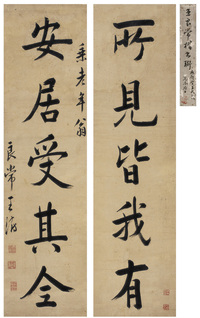 王良常楷書聯
所見皆我有
老年翁
安居受其全
良常王澍